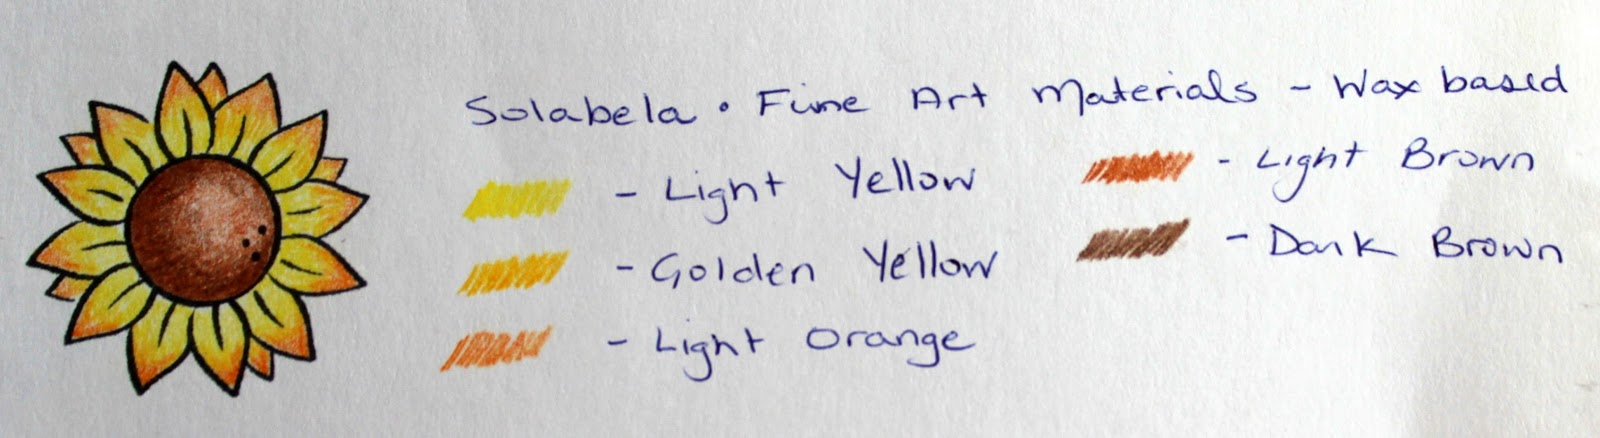 Solabela • Fine Art Materials - Wax based
- Light Yellow
- Golden Yellow
- Light Orange
- Light Brown
- Dark Brown